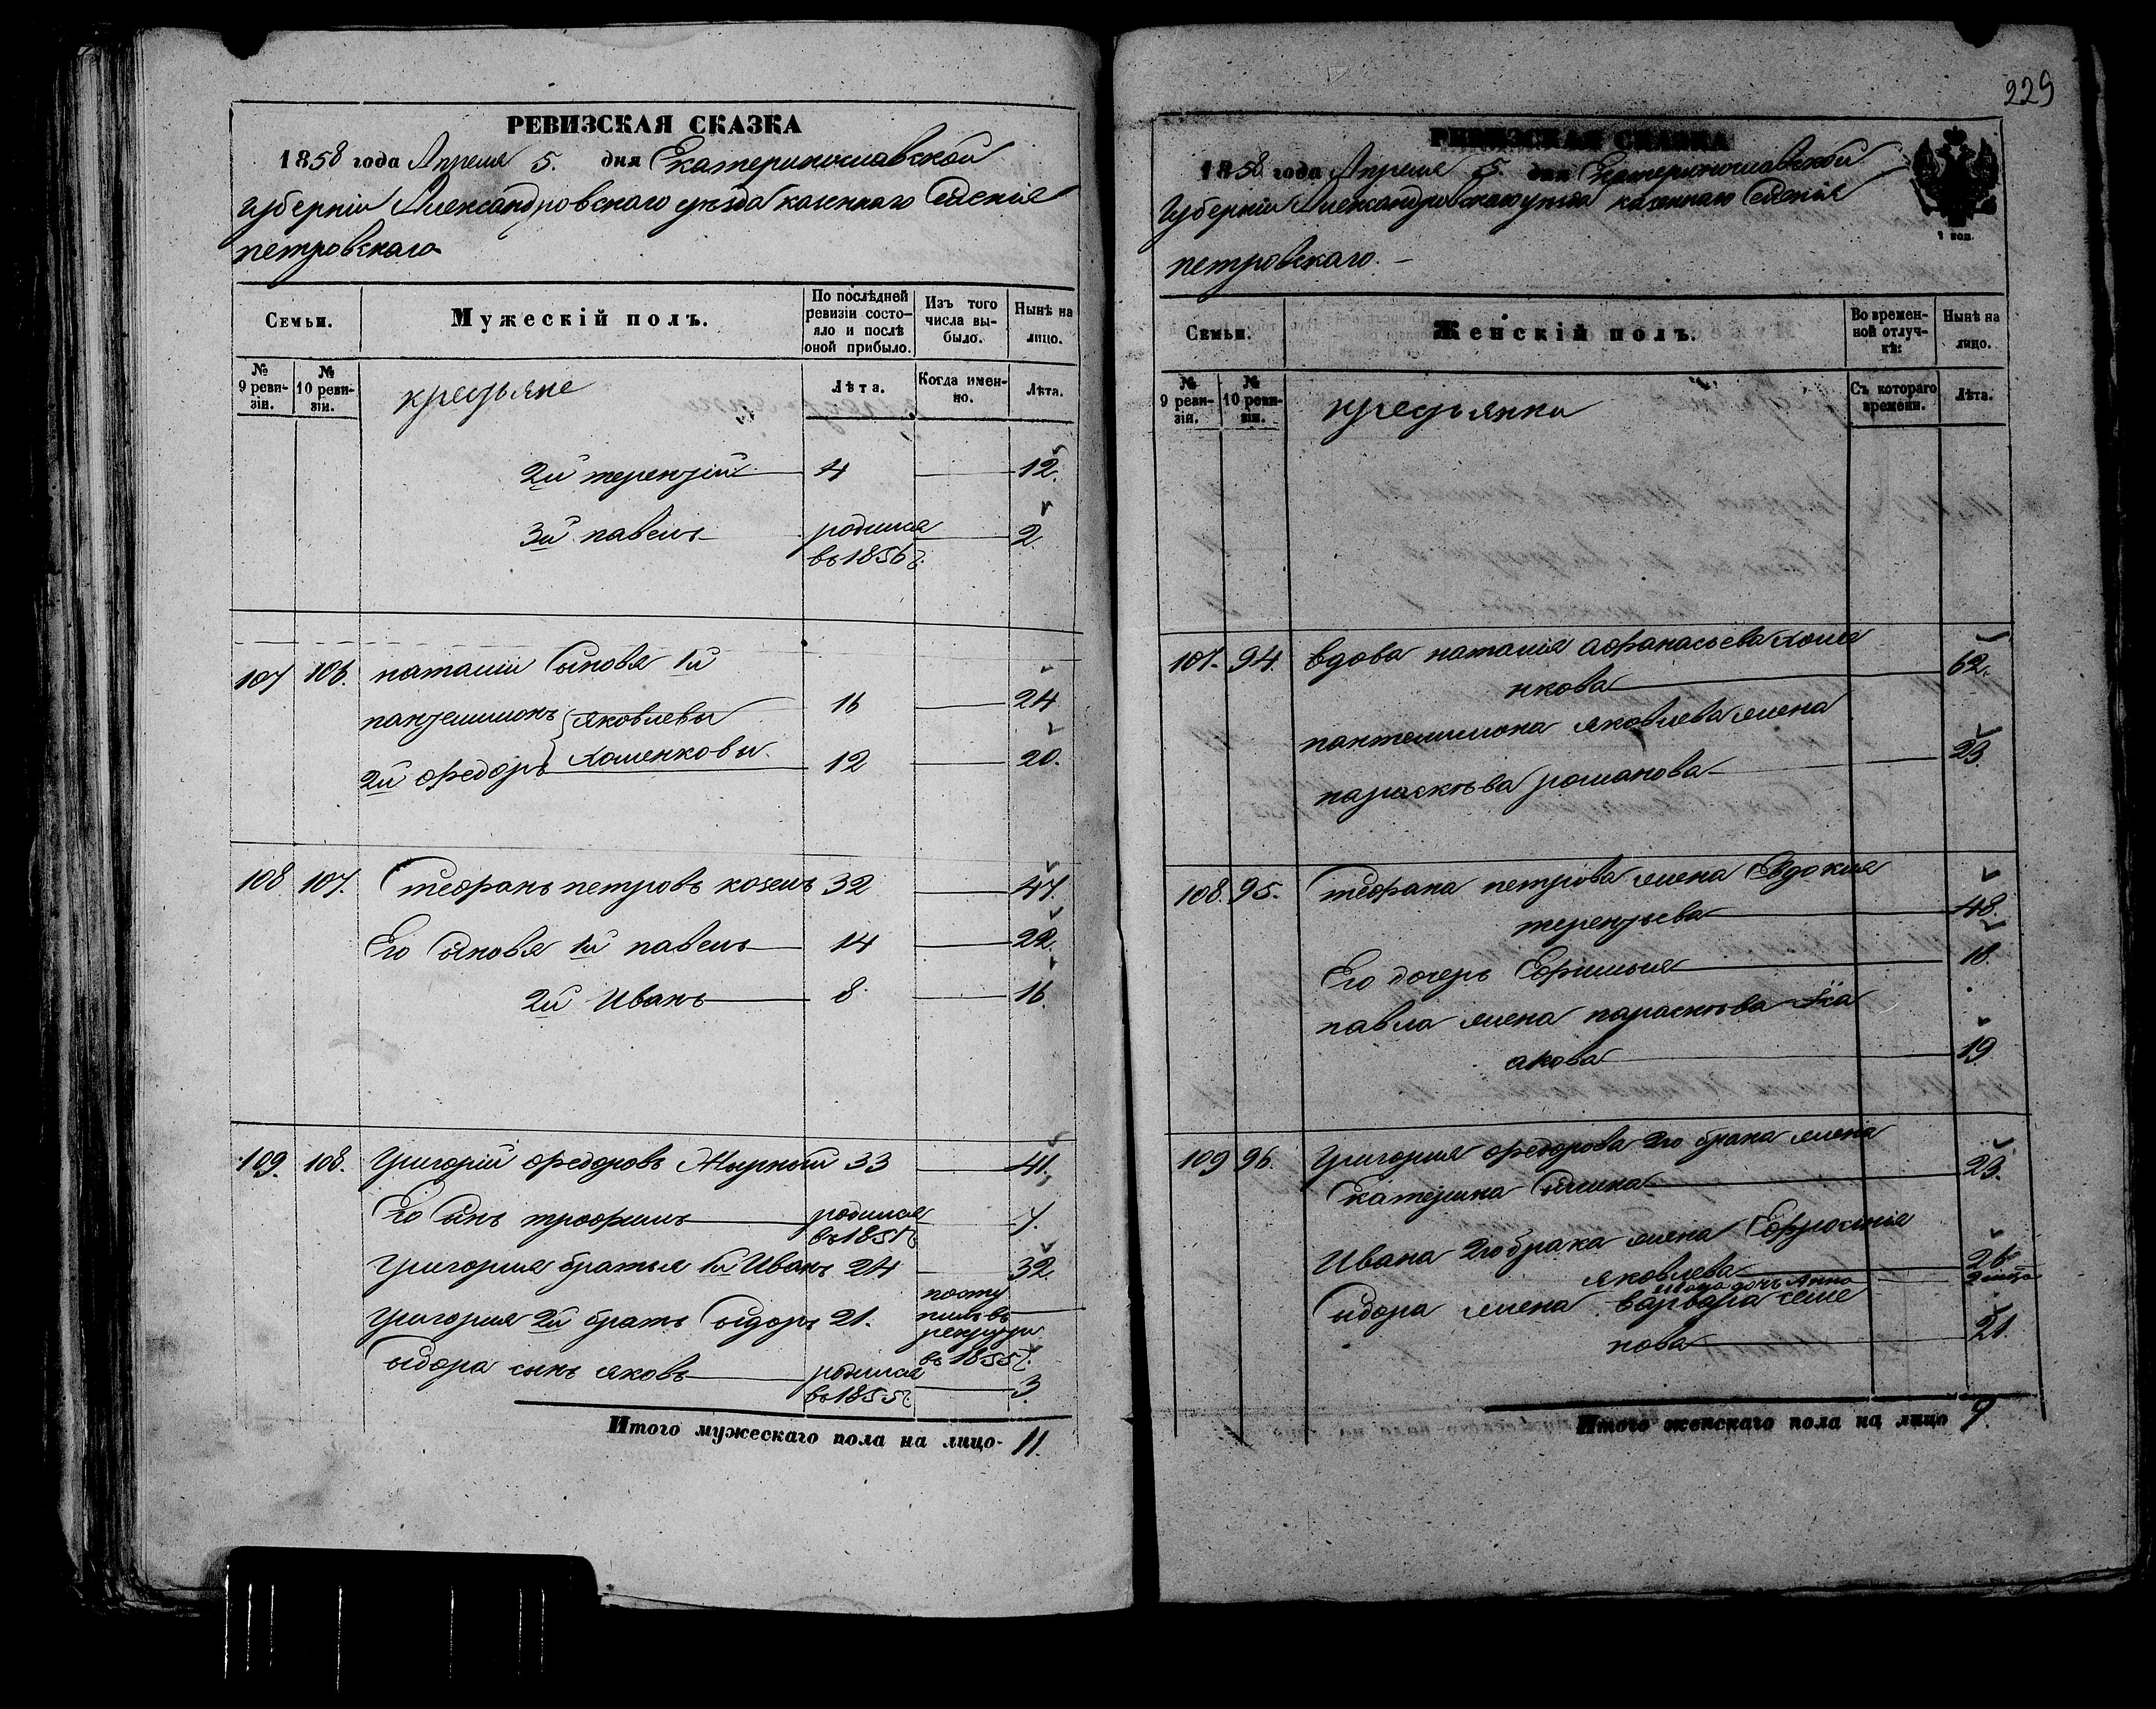 РЕВИЗСКАЯ СКАЗКА
1858 года Апреля 5. дня Екатеринославской
Губерніи Александровскаго уѣзда казеннаго Селенія
петровскаго
Семьи.
Мужескій полъ.
По послѣдней ревизіи состояло и послѣ оной прибыло.
Изъ того числа выбыло.
Нынѣ на лицо.
№ 9 ревизіи.
№ 10 ревизіи.
крестьяне
Лѣта.
Когда именно.
Лѣта.
2й терентій 4 12.
3й павелъ родился въ 1856 г. 2
107 106. наталіи Сыновья 1й
пантелимонъ яковлевы 16 24
2й федоръ Хоменковы. 12 20.
108 107. Стефанъ петровъ козелъ 32 47.
Его Сыновья 1й павелъ 14 22.
2й Иванъ 8 16.
109. 108. Григорій федоровъ Жирный 33 41.
Его Сынъ трофимъ родился въ 1851 г. 7.
Григорія братья 1й Иванъ 24 32.
Григорія 2й братъ Сидоръ 21. поступилъ въ рекруты въ 1855 г.
Сидора сынъ яковъ родился въ 1855 г. 3.
Итого мужескаго пола на лицо- 11.
229
РЕВИЗСКАЯ СКАЗКА
1858 года Апреля 5. дня Екатеринославской
Губерніи Александровскаго уѣзда казеннаго Селенія
петровскаго. –
1 коп.
Семьи.
Женскій полъ.
Во временной отлучкѣ:
Нынѣ на лицо.
№ 9 ревизіи.
№ 10 ревизіи.
крестьянки
Съ котораго времени.
Лѣта.
107. 94. вдова наталія афанасьева Хоме
нкова 62.
пантелимона яковлева жена
параскева романова 23.
108. 95. Стефана петрова жена Евдокия
терентьева 48.
Его дочерь Ефимия 18.
павла жена параскева Іса
акова 19
109 96. Григория федорова 2го брака жена
Екатерина Сомина 23.
Ивана 2го брака жена Ефросинія
яковлева 26
дочь Анна
Сидора жена варвара семе
нова 21.
Итого женскаго пола на лицо 9.